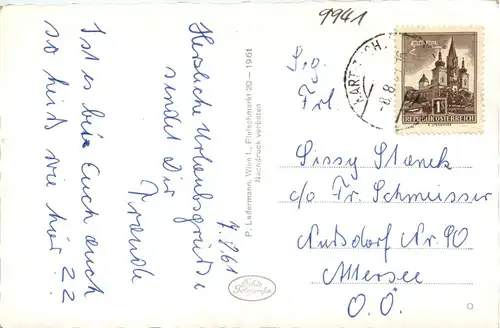 9941
7.8.61
Herzliche Urlaubsgrüße
sendet Dir
Traude
Ist es bei Euch auch
so heiß wie hier? ??
P. Ledermann, Wien 1., Fleischmarkt 20 – 1961
Nachdruck verboten
Echte
Fotografie
-8.8.
REPUBLIK ÖSTERREICH
Frl.
Sissy Stanek
c/o Fr. Schmeisser
Nußdorf Nr. 90
Attersee
O.Ö.